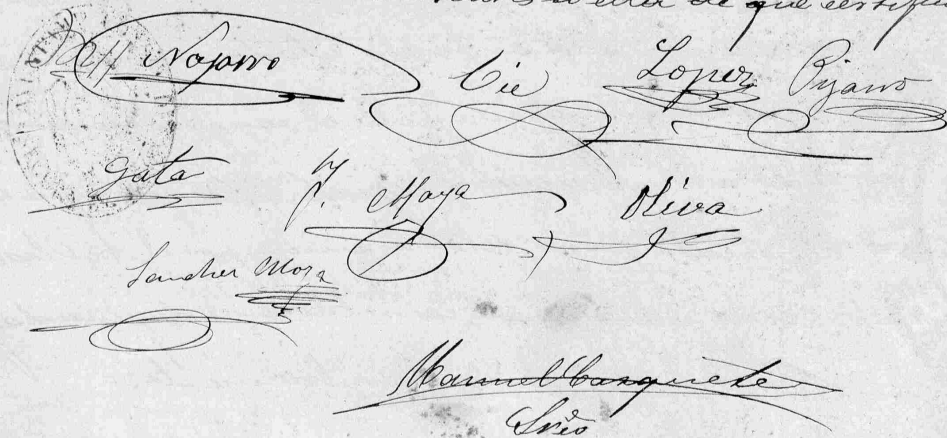 de que certifico
Navarro Cié Lopez Pijano
Gata J. Moya Oliva
Sanchez Moya
Manuel Casquete
Srio